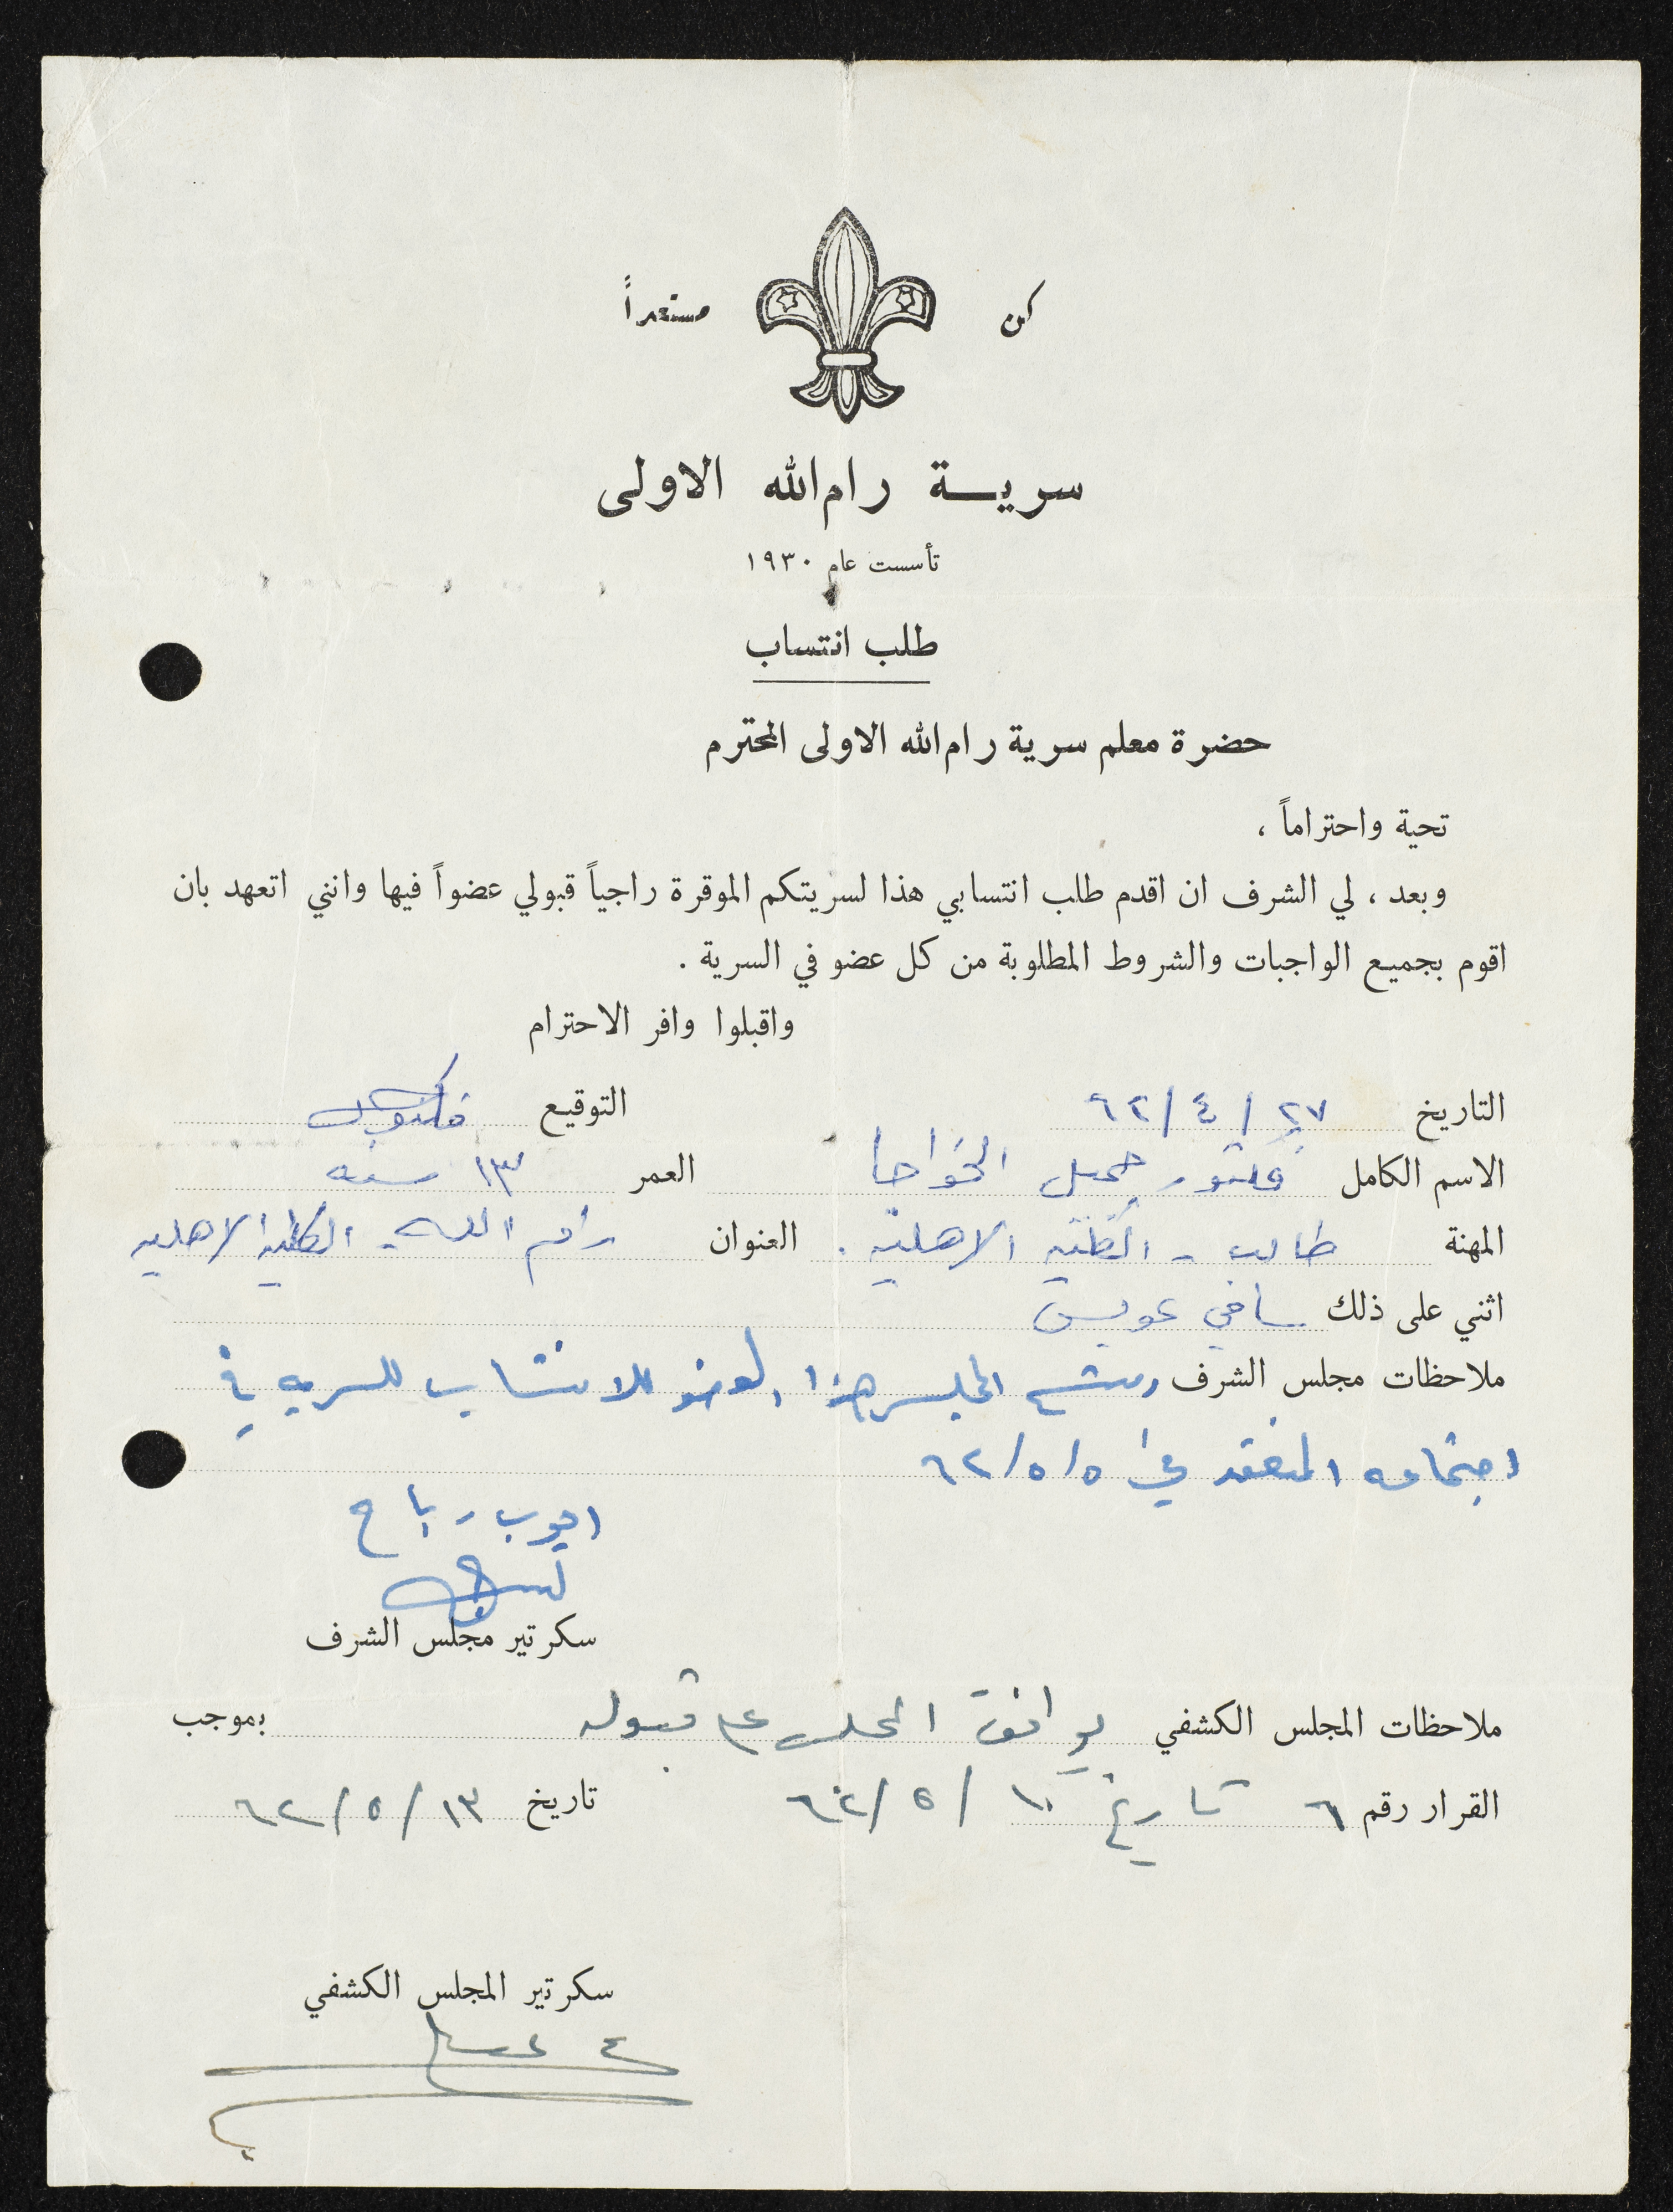 كن مستعداً
سرية رام الله الاولى
تأسست عام ١٩٣٠
طلب انتساب
حضرة معلم سرية رام الله الاولى المحترم
تحية واحتراماً ،
وبعد ، لي الشرف ان اقدم طلب انتسابي هذا لسريتكم الموقرة راجياً قبولي عضواً فيها وانني اتعهد بان
اقوم بجميع الواجبات والشروط المطلوبة من كل عضو في السرية .
واقبلوا وافر الاحترام
التاريخ ٢٧ / ٤ / ٦٢ التوقيع
الاسم الكامل فكتور جميل الخواجا العمر ١٣ سنه
المهنة طالب - الكلية الاهلية . العنوان رام الله - الكلية الاهليه
اثني على ذلك سامي عويس
ملاحظات مجلس الشرف المجلس هذا العضو للانتساب للسريه في
اجتماعه المنعقد في ٥ / ٥ / ٦٢
ايوب رباح
سكرتير مجلس الشرف
ملاحظات المجلس الكشفي يوافق المجلس على قبوله بموجب
القرار رقم ٦ تاريخ ١٠ / ٥ / ٦٢ تاريخ ١٣ / ٥ / ٦٢
سكرتير المجلس الكشفي